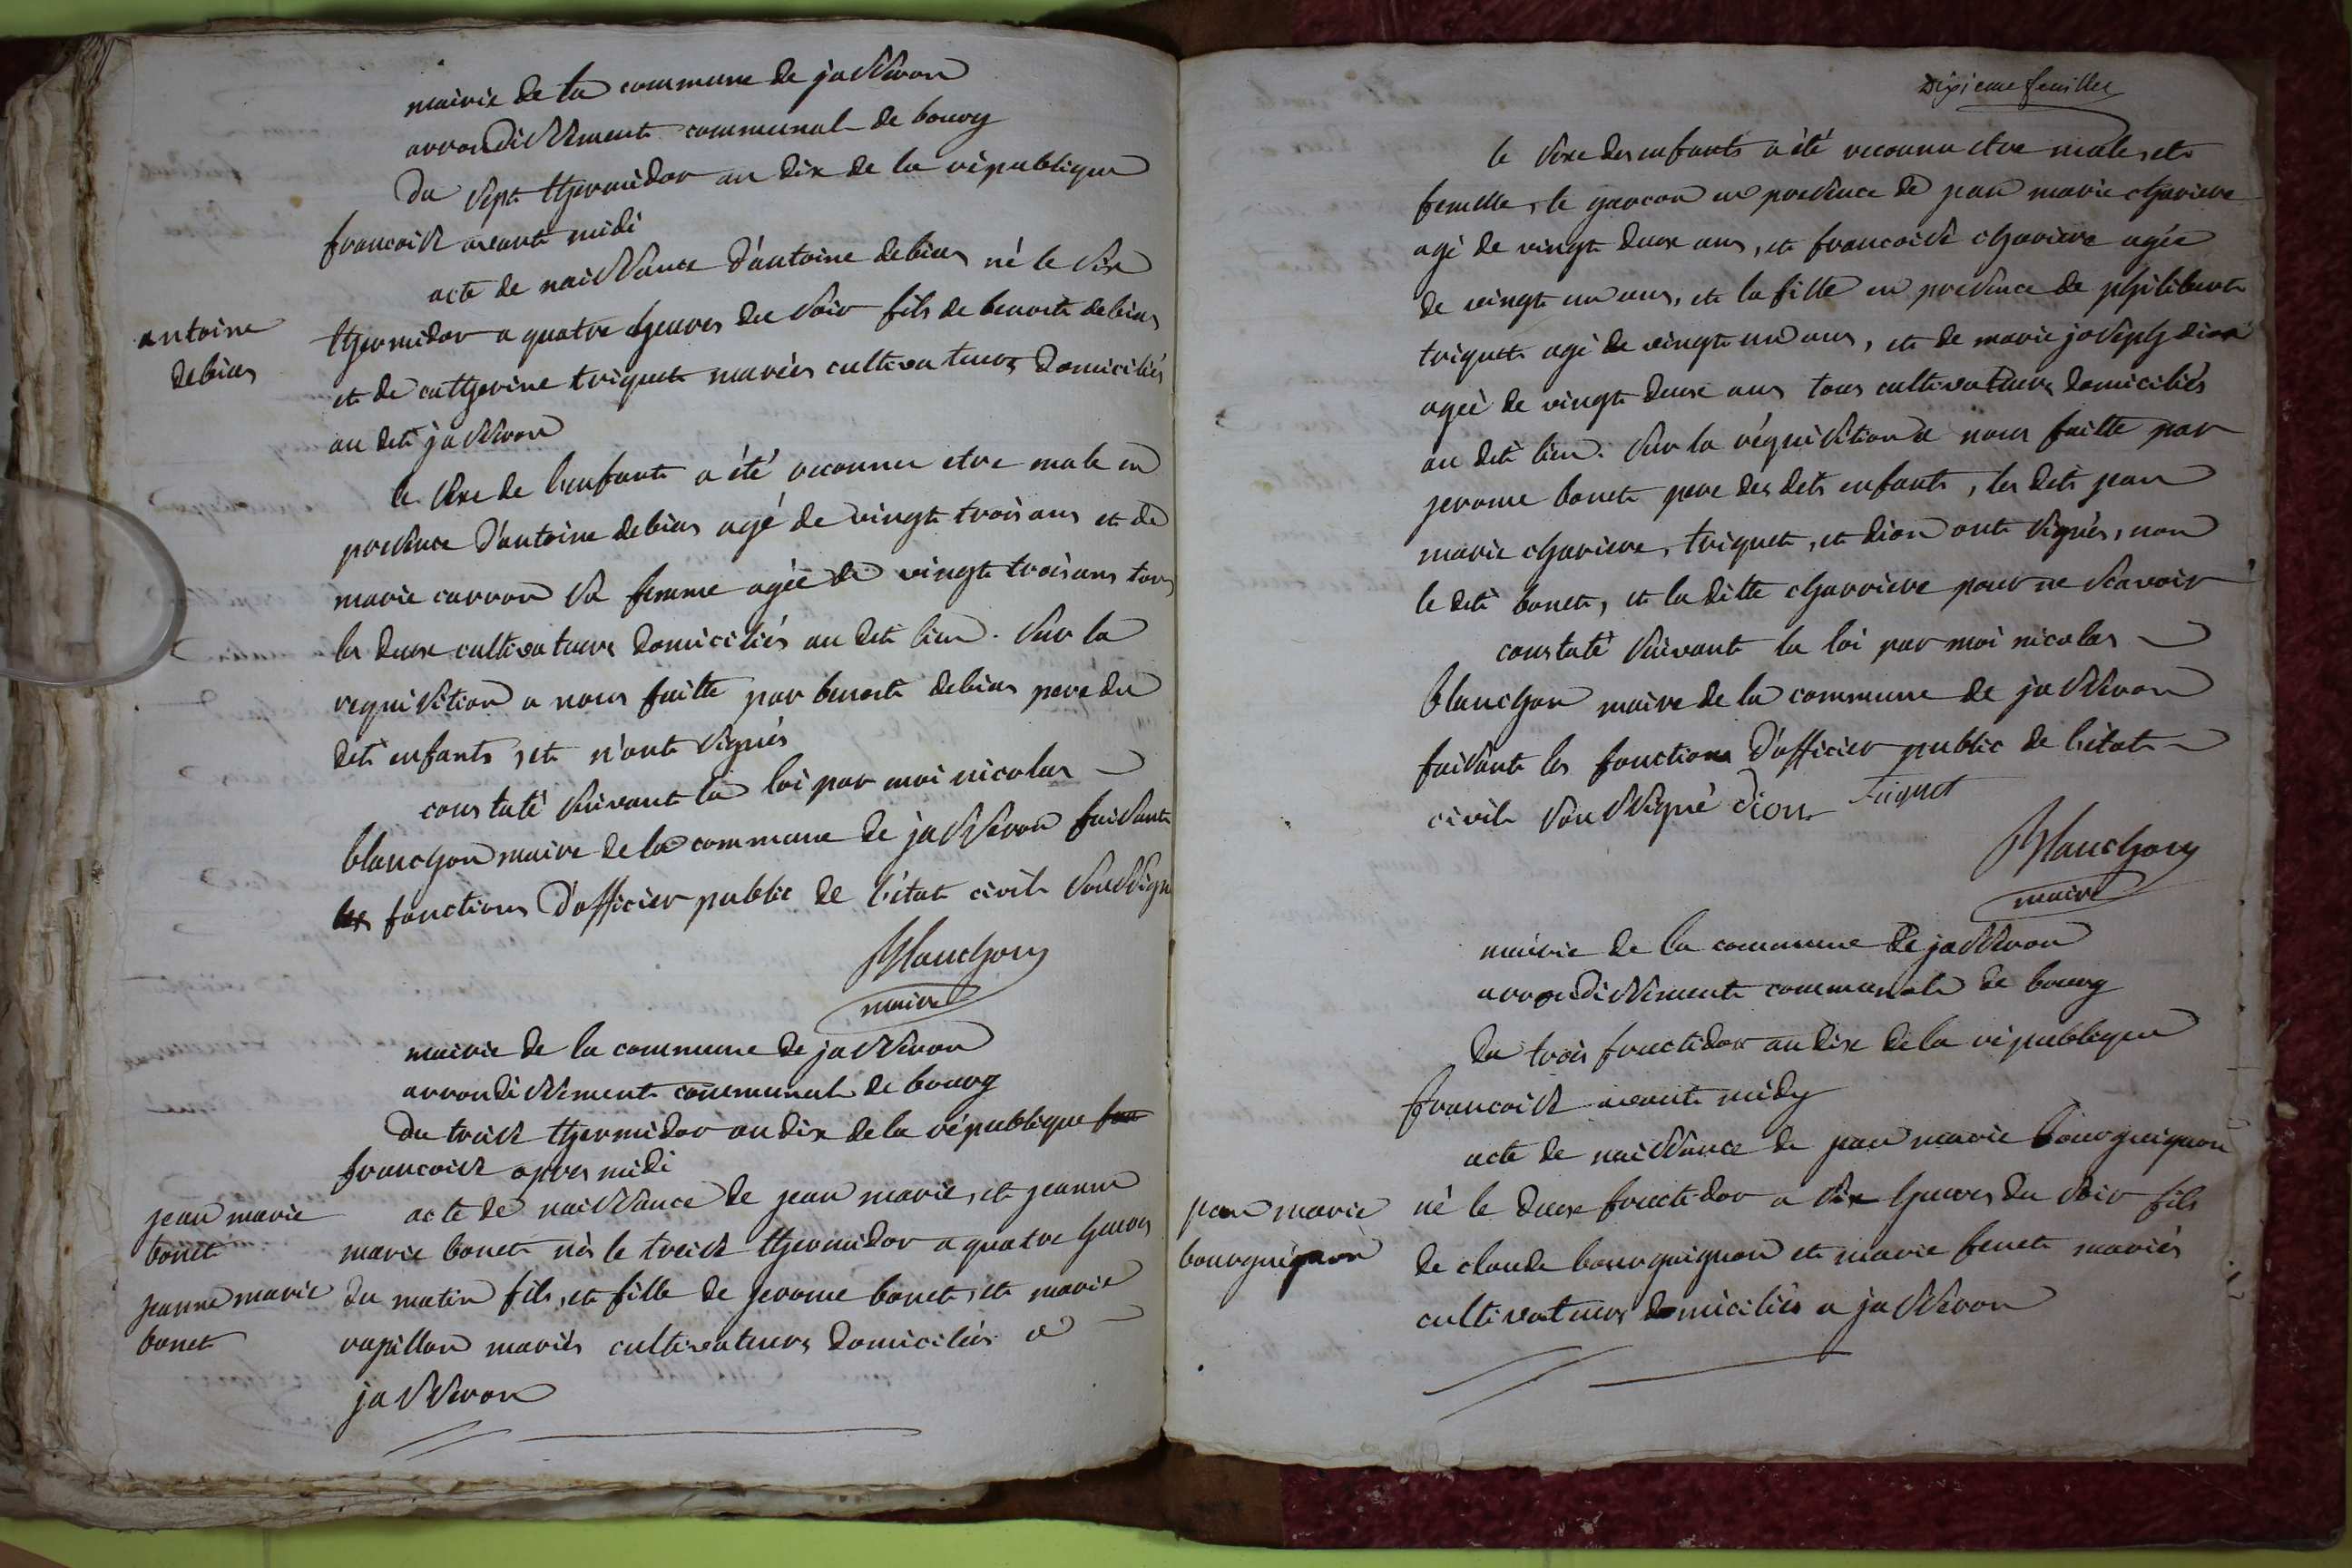 mairie de la commune de jasseron
arrondissement communal de bourg
Du sept thermidor an dix de la république
francoise avant midi
acte de naissance d'antoine debias né le six
antoine
debias
thermidor a quatre heures du soir fils de benoit debias
et de catherine triquet mariés cultivateurs domiciliés
au dit jasseron
le sexe de l'enfant a été reconnu etre male en
presence d'antoine debias agé de vingt trois ans et de
marie carron sa femme agée de vingt trois ans tous
les deux cultivateurs domiciliés au dit lieu. sur la
requisition a nous faitte par benoit debias pere du
dit enfant, et n'ont signés
constaté suivant la loi par moi nicolas
blanchon maire de la commune de jasseron faisant
les fonctions d'officier public de l'état civil soussigné
Blanchon
maire
mairie de la commune de jasseron
arrondissement communal de bourg
Du treise thermidor an dix de la république
francoise apres midi
acte de naissance de jean marie, et jeanne
jean marie
bonet
jeanne marie
bonet
marie bonet nés le treise thermidor a quatre heures
du matin fils, et fille de jerome bonet, et marie
rapillon mariés cultivateurs domiciliés a
jasseron
Dixieme feuillet
le sexe des enfants a été reconnu etre male, et
femelle, le garcon en presence de jean marie chariere
agé de vingt deux ans, et francoise chariere agée
de vingt un ans, et la fille en presence de philibert
triquet agé de vingt un ans, et de marie joseph dion
agée de vingt deux ans tous cultivateurs domiciliés
au dit lieu. sur la réquisition a nous faitte par
jerome bonet pere des dits enfants, les dits jean
marie chariere, triquet, et dion ont signés, non
le dit bonet, et la ditte charriere pour ne scavoir
constaté suivant la loi par moi nicolas
blanchon maire de la commune de jasseron
faisant les fonctions d'officier public de l'état
civil soussigné dion Triquet
Blanchon
maire
mairie de la commune de jasseron
arrondissement communal de bourg
du trois fructidor an dix de la république
francoise avant midy
acte de naissance de jean marie bourguignon
jean marie
bourguignon
né le deux fructidor a six heures du soir fils
de claude bourguignon et marie fenet mariés
cultivateurs domiciliés a jasseron